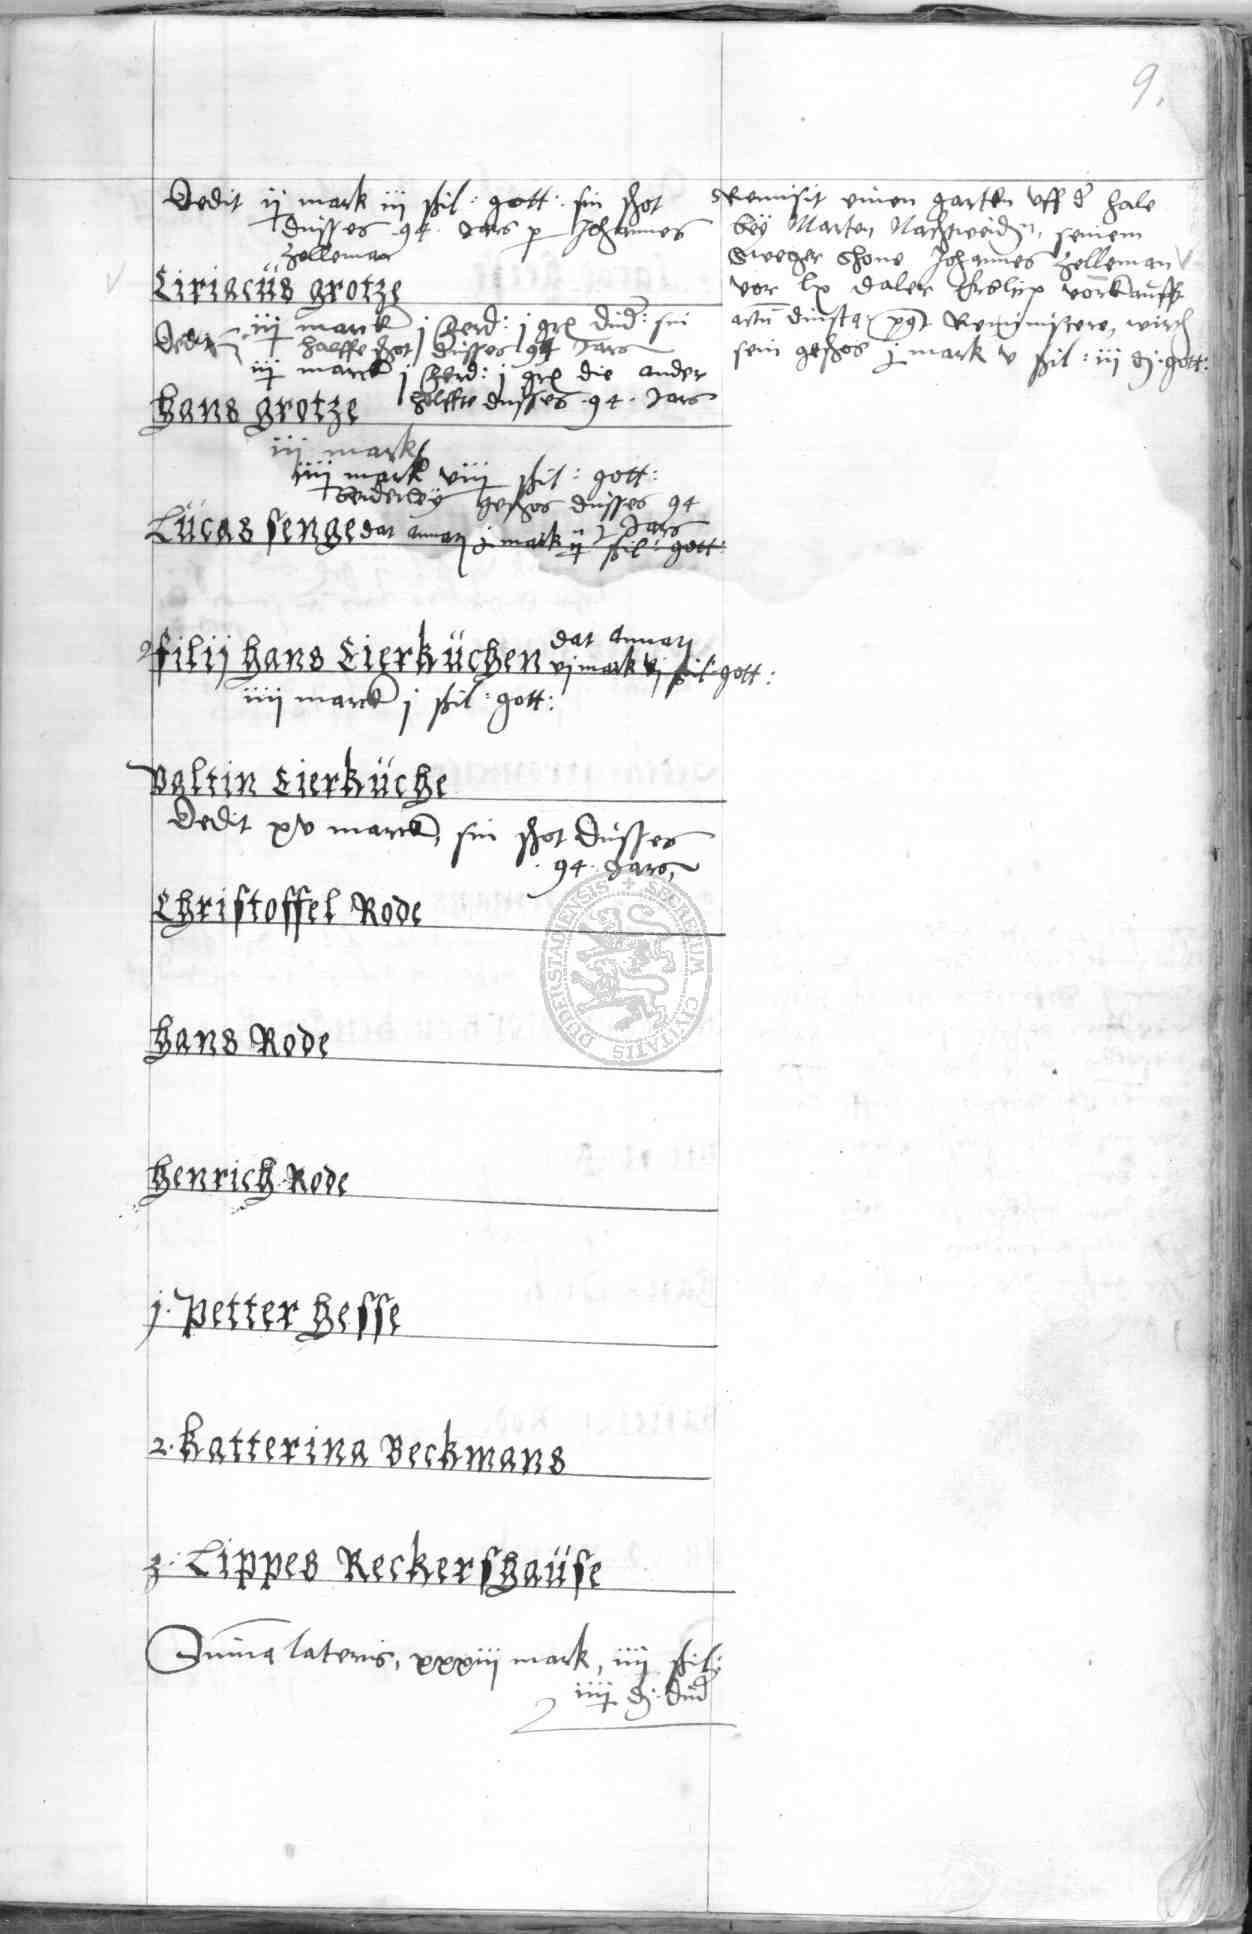 9.
Dedit ij mark iij ßil: gott: sin shot
dusses 94 Jars p Johannes
Zelleman
Ciriacüs grotze
Dedit iij marck j ferd: j gr dud: sin
halffe shot dusses 94 Jars
iij marck j ferd: j gr die ander
helffte dusses 94 Jars
Hans grotze
iij mark
iiij mark viij ßil: gott:
geshos dusses 94
Jars
Lücas senge dat annuatim j mark ij ßil: gott:
filij Hans Eierküchen dat annuatim
vj mark vj ßil gott:
iiij marck j ßil: gott:
Valtin Eierküche
Dedit xv marck, sin shot dusses
94. Jars,
Christoffel Rode
Hans Rode
Henrich Rode
1. Petter Hesse
2. Katterina Beckmans
3. Lippes Reckershaüse
Summa lateris, xxxiii mark, iiij ßil:
iiij d: dud
Remisit einen garten uff d hale
bey Marten Nachtweiden, seinem
Sweger shone Johannes Zelleman
vor lx daler erblich vorkaufft
actum dinstag post Reminiscere, wird
sein geshos j mark v ßil: iij d: gott:
SECRETUM CIVITATIS DUDERSTADIENSIS